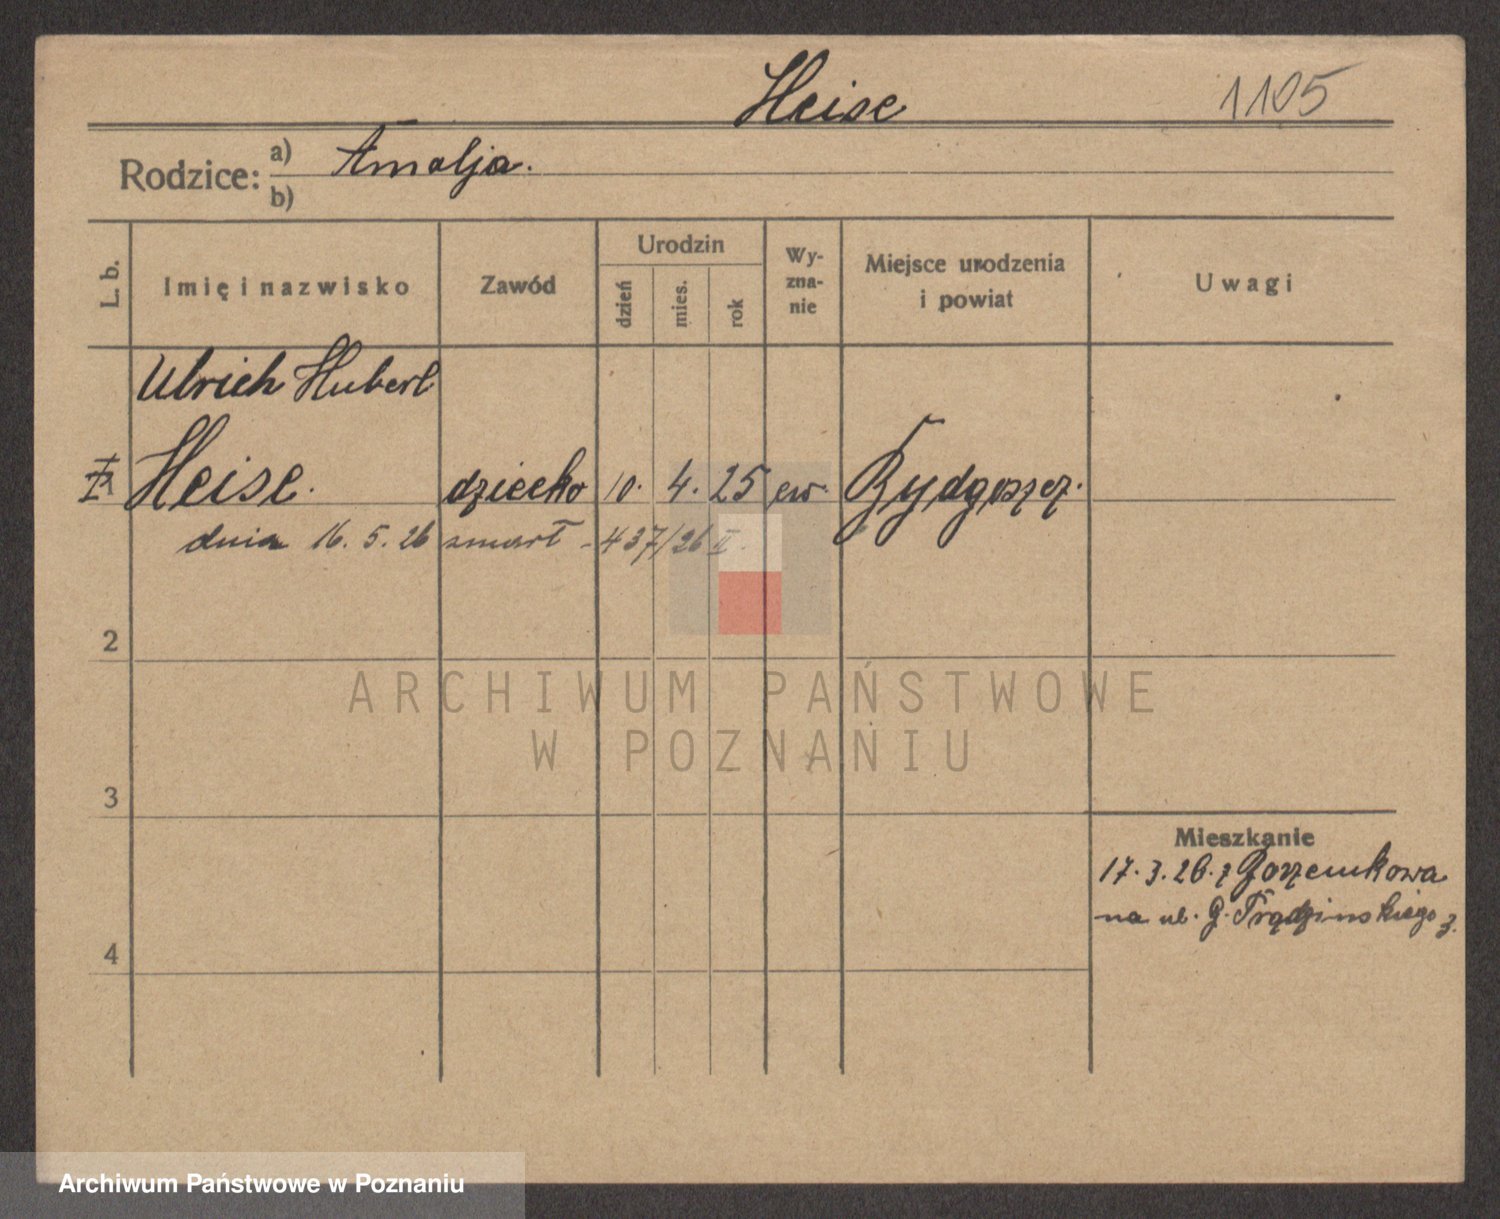 Heise 1105
Rodzice: a) Amalja.
b)
L. b. Imię i nazwisko Zawód Urodzin dzień mies. rok Wy-zna-nie Miejsce urodzenia i powiat Uwagi
Ulrich Hubert
Heise. dziecko 10. 4. 25 ew. Bydgoszcz.
dnia 16. 5. 26 zmarł - 437/26 II.
2
ARCHIWUM PAŃSTWOWE
W POZNANIU
3
Mieszkanie
17. 3. 26. z
na ul. G.
4
Archiwum Państwowe w Poznaniu